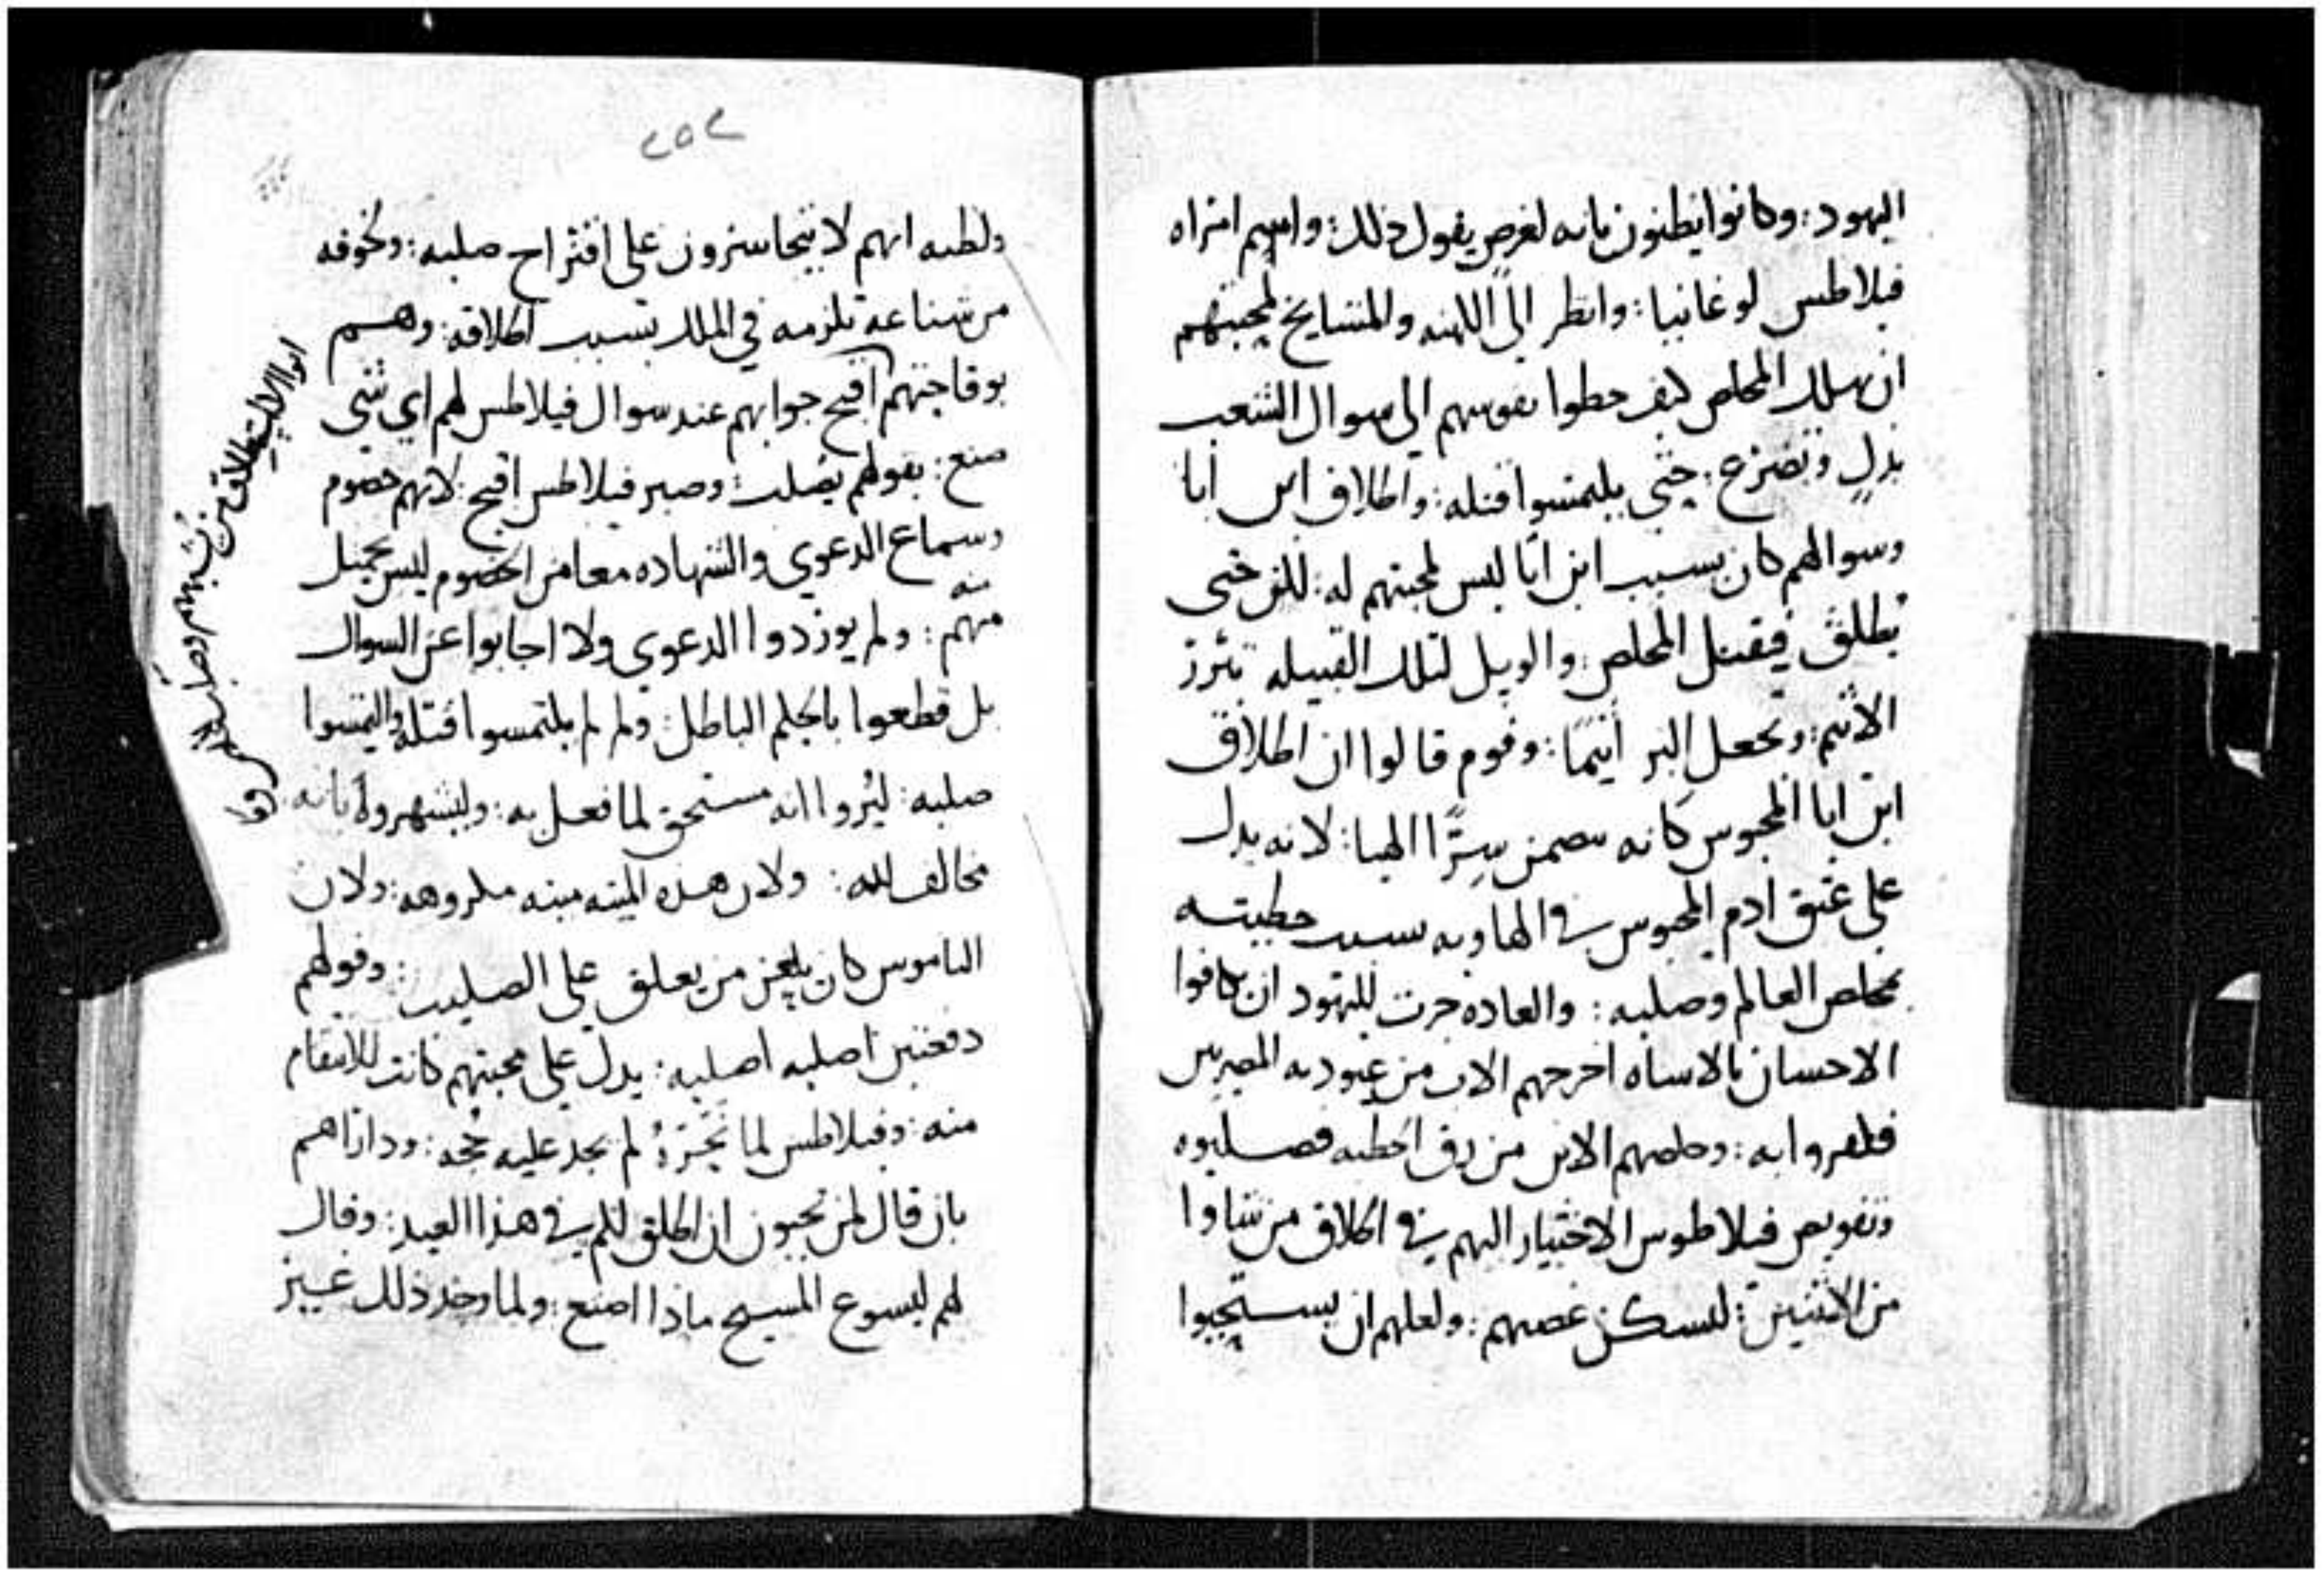 اليهود: وكانوا يظنون بانه لغرض يقول ذلك: واسم امراه
فيلاطس لوغانيا: وانظر الى الكهنه والمشايخ لمحبتهم
ان يهلك المخلص كيف حطوا نفوسهم الى سوال الشعب
بذل وتضرع: حتى يلتمسوا قتله: واطلاق ابن ابا
وسوالهم كان بسبب ابن ابا ليس لمحبتهم له: لكن حتى
يطلق فيقتل المخلص: والويل لتلك القبيله تبرر
الاثيم: وتجعل البر اثيمًا: وقوم قالوا ان اطلاق
ابن ابا المحبوس كانه يتضمن سرًا الهيا: لانه يدل
على عتق ادم المحبوس في الهاويه بسبب خطيته
بمخلص العالم وصلبه: والعاده جرت لليهود ان كافوا
الاحسان بالاساه اخرجهم الاب من عبوديه المصريين
فكفروا به: وخلصهم الابن من رق الخطيه فصلبوه
وتفويض فيلاطوس الاختيار اليهم في اطلاق من شاوا
من الاثنين: لتسكن غضبهم: ولعلهم ان يستحيوا
٢٥٢
ولظنه انهم لا يتجاسرون على اقتراح صلبه: ولخوفه
من شناعه تلزمه في الملك بسبب اطلاقه: وهم
بوقاحتهم اقبح جوابهم عند سوال فيلاطس لهم اي شي
صنع: بقولهم يصلب: وصبر فيلاطس اقبح: لانهم خصوم
وسماع الدعوي والشهاده معا من الخصوم ليس بجميل
منه
منهم: ولم يوردوا الدعوي ولا اجابوا عن السوال
بل قطعوا بالحكم الباطل: ولم لم يلتمسوا قتله والتمسوا
صلبه: ليروا انه مستحق لما فعل به: وليشهروه بانه
مخالف لله: ولان هذه الميته ميته مكروهه: ولان
الناموس كان يلعن من يعلق على الصليب: وقولهم
دفعتين اصلبه اصلبه: يدل على محبتهم كانت للانتقام
منه: وفيلاطس لما لم يجد عليه حجه: وداراهم
بان قال لمن تحبون ان اطلق لكم في هذا العيد: وقال
لهم ليسوع المسيح ماذا اصنع: ولما وجد ذلك غير